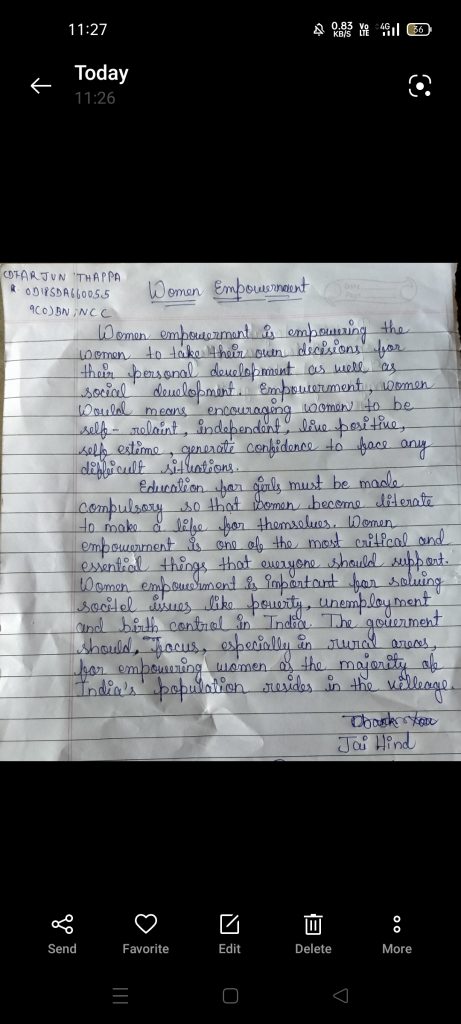 11:27
0.83 KB/S Vo LTE 4G 36
Today
11:26
CDT ARJUN THAPPA
9(O)BN, NCC
Women Empowerment
Women empowerment is empowering the
women to take their own decisions for
their personal development as well as
social development. Empowerment, women
Would means encouraging women to be
self-relaint, independent, live positive,
self estime, generate confidence to face any
difficult situations.
Education for girls must be made
compulsory so that women become literate
to make a life for themselves. Women
empowerment is one of the most critical and
essential things that everyone should support.
Women empowerment is important for solving
socitel issues like poverty, unemployment
and birth control in India. The goverment
should, focus, especially in rural areas,
for empowering women as the majority of
India's population resides in the villeage.
Thank You
Jai Hind
Send Favorite Edit Delete More